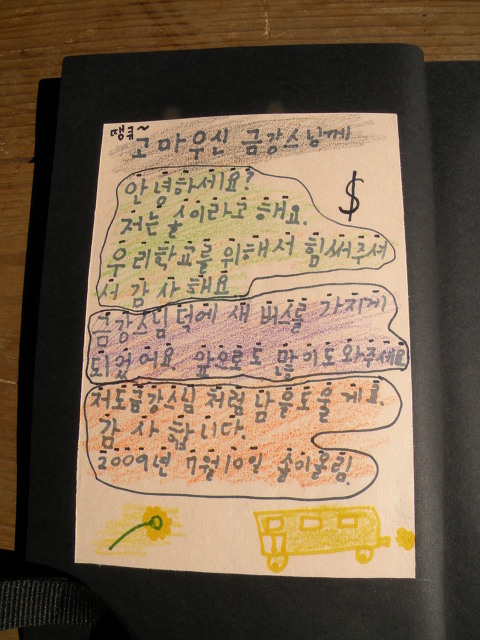 땡큐~
고마우신 금강스님께
안녕하세요?
저는 솔이라고 해요.
$
우리학교를 위해서 힘써주셔
서 감사해요
금강스님 덕에 새 버스를 가지게
되었어요. 앞으로도 많이도와주세요
저도금강스님 처럼 남을도울게요.
감사합니다.
2009년 7월10일 솔이올림.